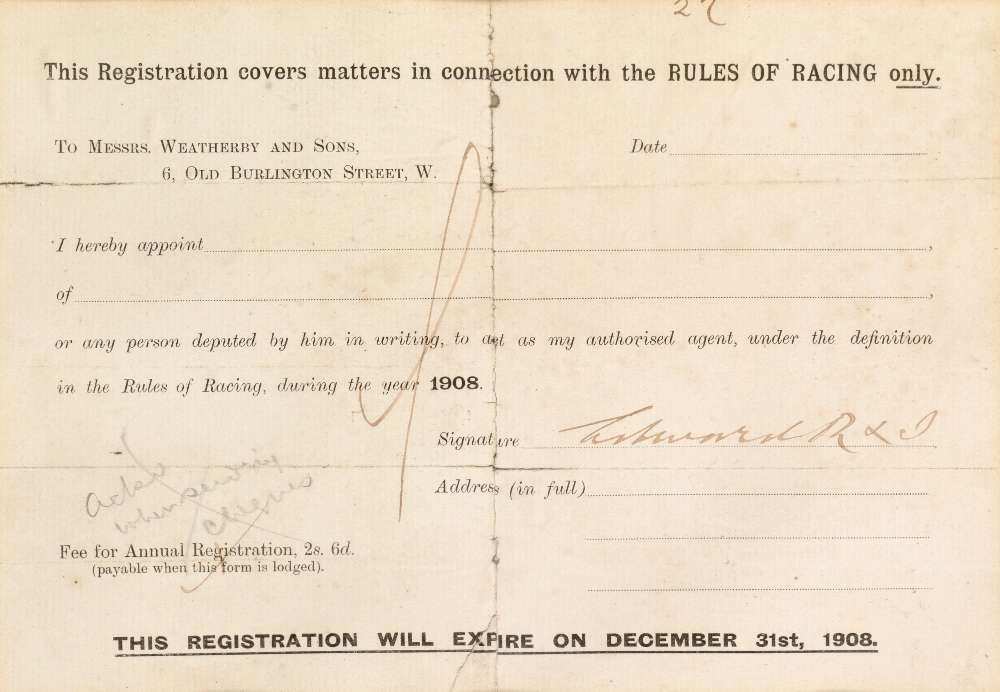 27
This Registration covers matters in connection with the RULES OF RACING only.
To Messrs. Weatherby and Sons,
Date
6, Old Burlington Street, W.
I hereby appoint ,
of ,
or any person deputed by him in writing, to act as my authorised agent, under the definition
in the Rules of Racing, during the year 1908.
Signature Edward R & I
Address (in full)
when
Fee for Annual Registration, 2s. 6d.
(payable when this form is lodged).
THIS REGISTRATION WILL EXPIRE ON DECEMBER 31st, 1908.